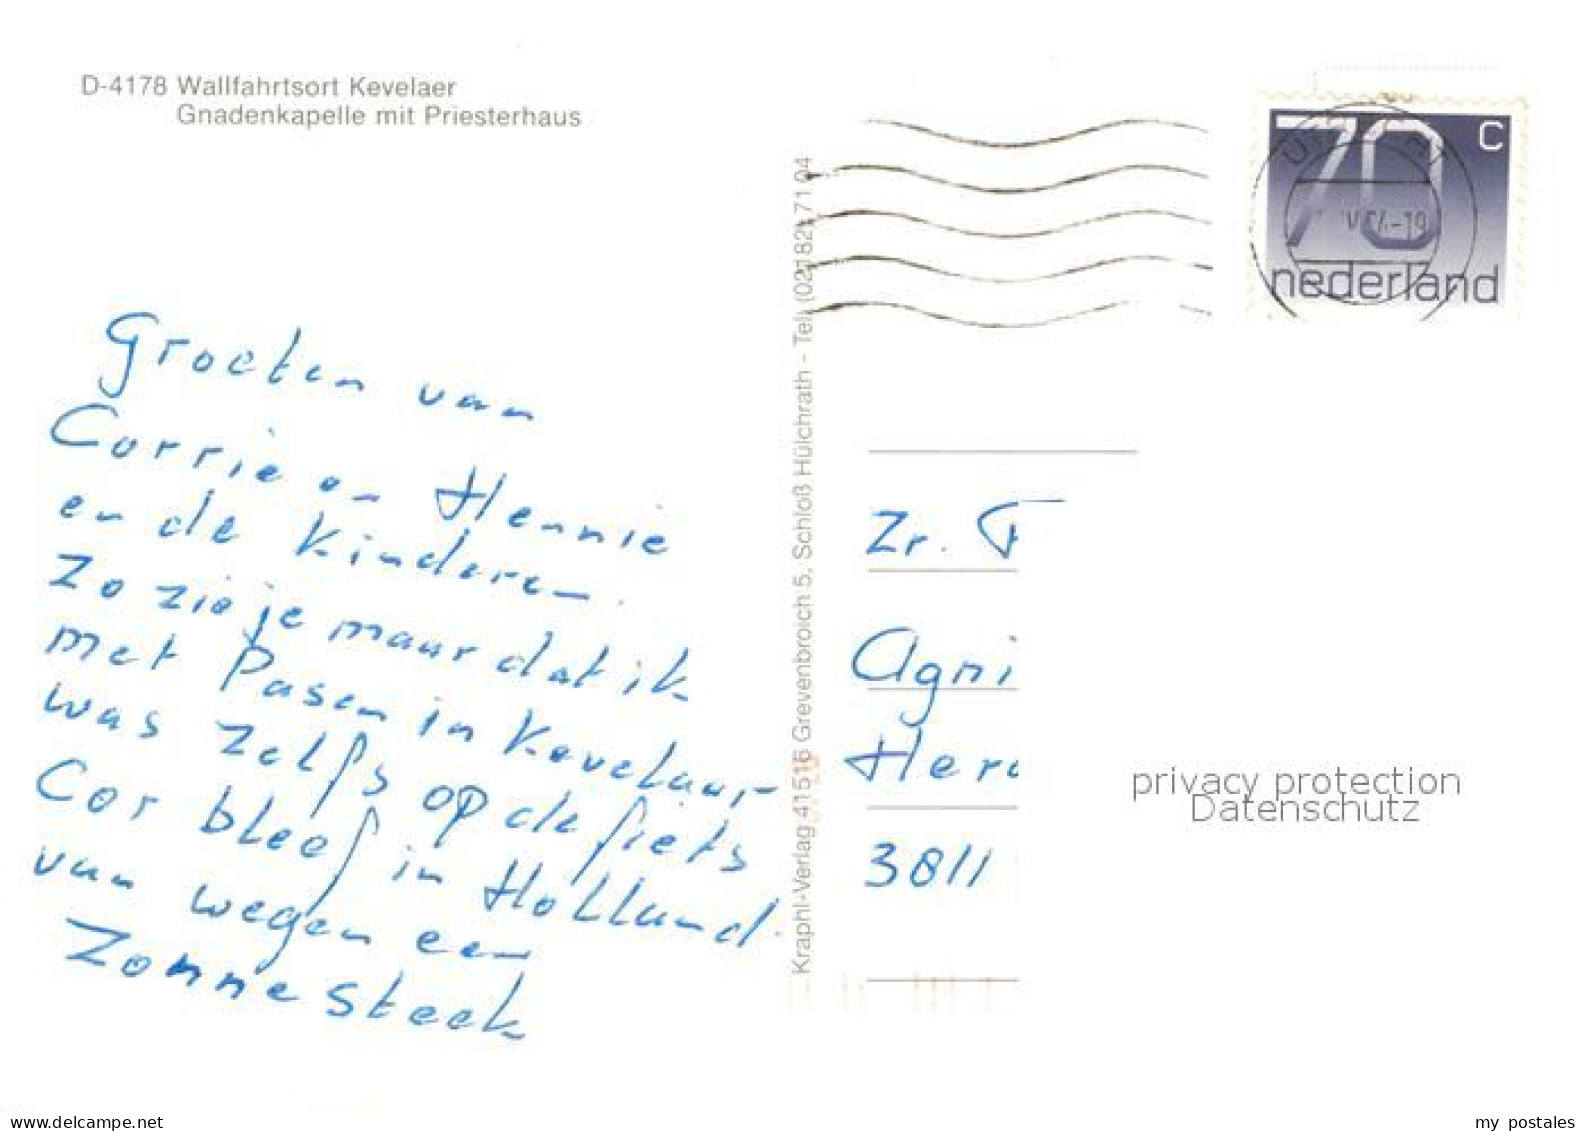 D-4178 Wallfahrtsort Kevelaer
Gnadenkapelle mit Priesterhaus
Groeten van
Corrie en Hennie
en de Kinderen.
Zo zie je maar dat ik
met Pasen in Kevelaar
was zelfs op de fiets
Cor bleef in Holland.
van wegen een
Zonnesteek
Kraphl-Verlag 41516 Grevenbroich 5, Schloß Hülchrath - Tel. (02182) 71 04
70 c
nederland
Zr.
Agni
Her
3811
privacy protection
Datenschutz
www.delcampe.net
my_postales